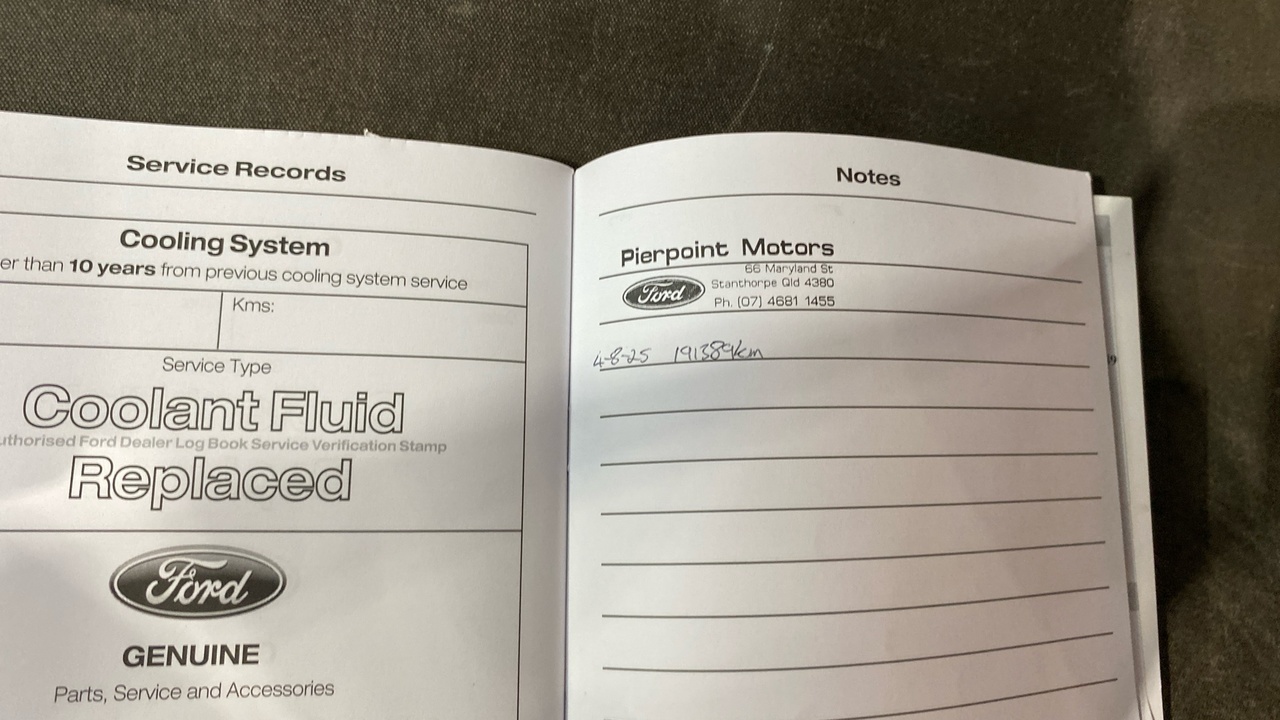 Service Records
Cooling System
er than 10 years from previous cooling system service
Kms:
Service Type
Coolant Fluid
uthorised Ford Dealer Log Book Service Verification Stamp
Replaced
Ford
GENUINE
Parts, Service and Accessories
Notes
Pierpoint Motors
66 Maryland St
Ford
Stanthorpe Qld 4380
Ph. (07) 4681 1455
4-8-25 191389km